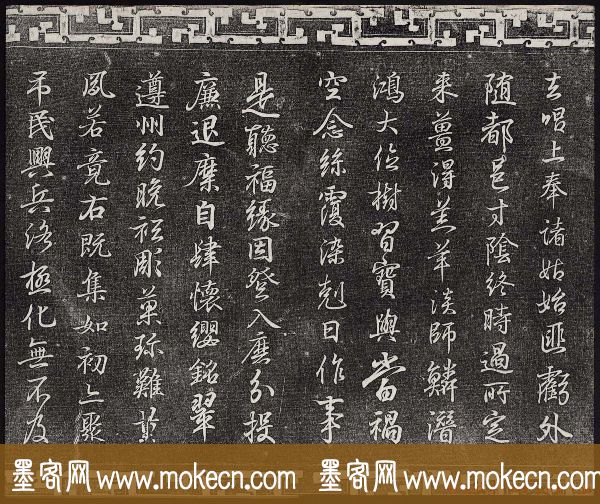 去唱上奉諸姑始匪虧外
随都邑寸陰終時過所定
来薑淂羔羊淡師鱗潛
鴻大位樹習寶與當禍
空念絲覆染剋日作事
是聽福緣因登入分投
廉退縻自肆懷纓銘翠
遵州約晚彫菓珎難
鳳若竟右既集如初聚
吊民興兵洛極化無不及
墨客网 www.mokecn.com 墨客网 www.mokecn.com